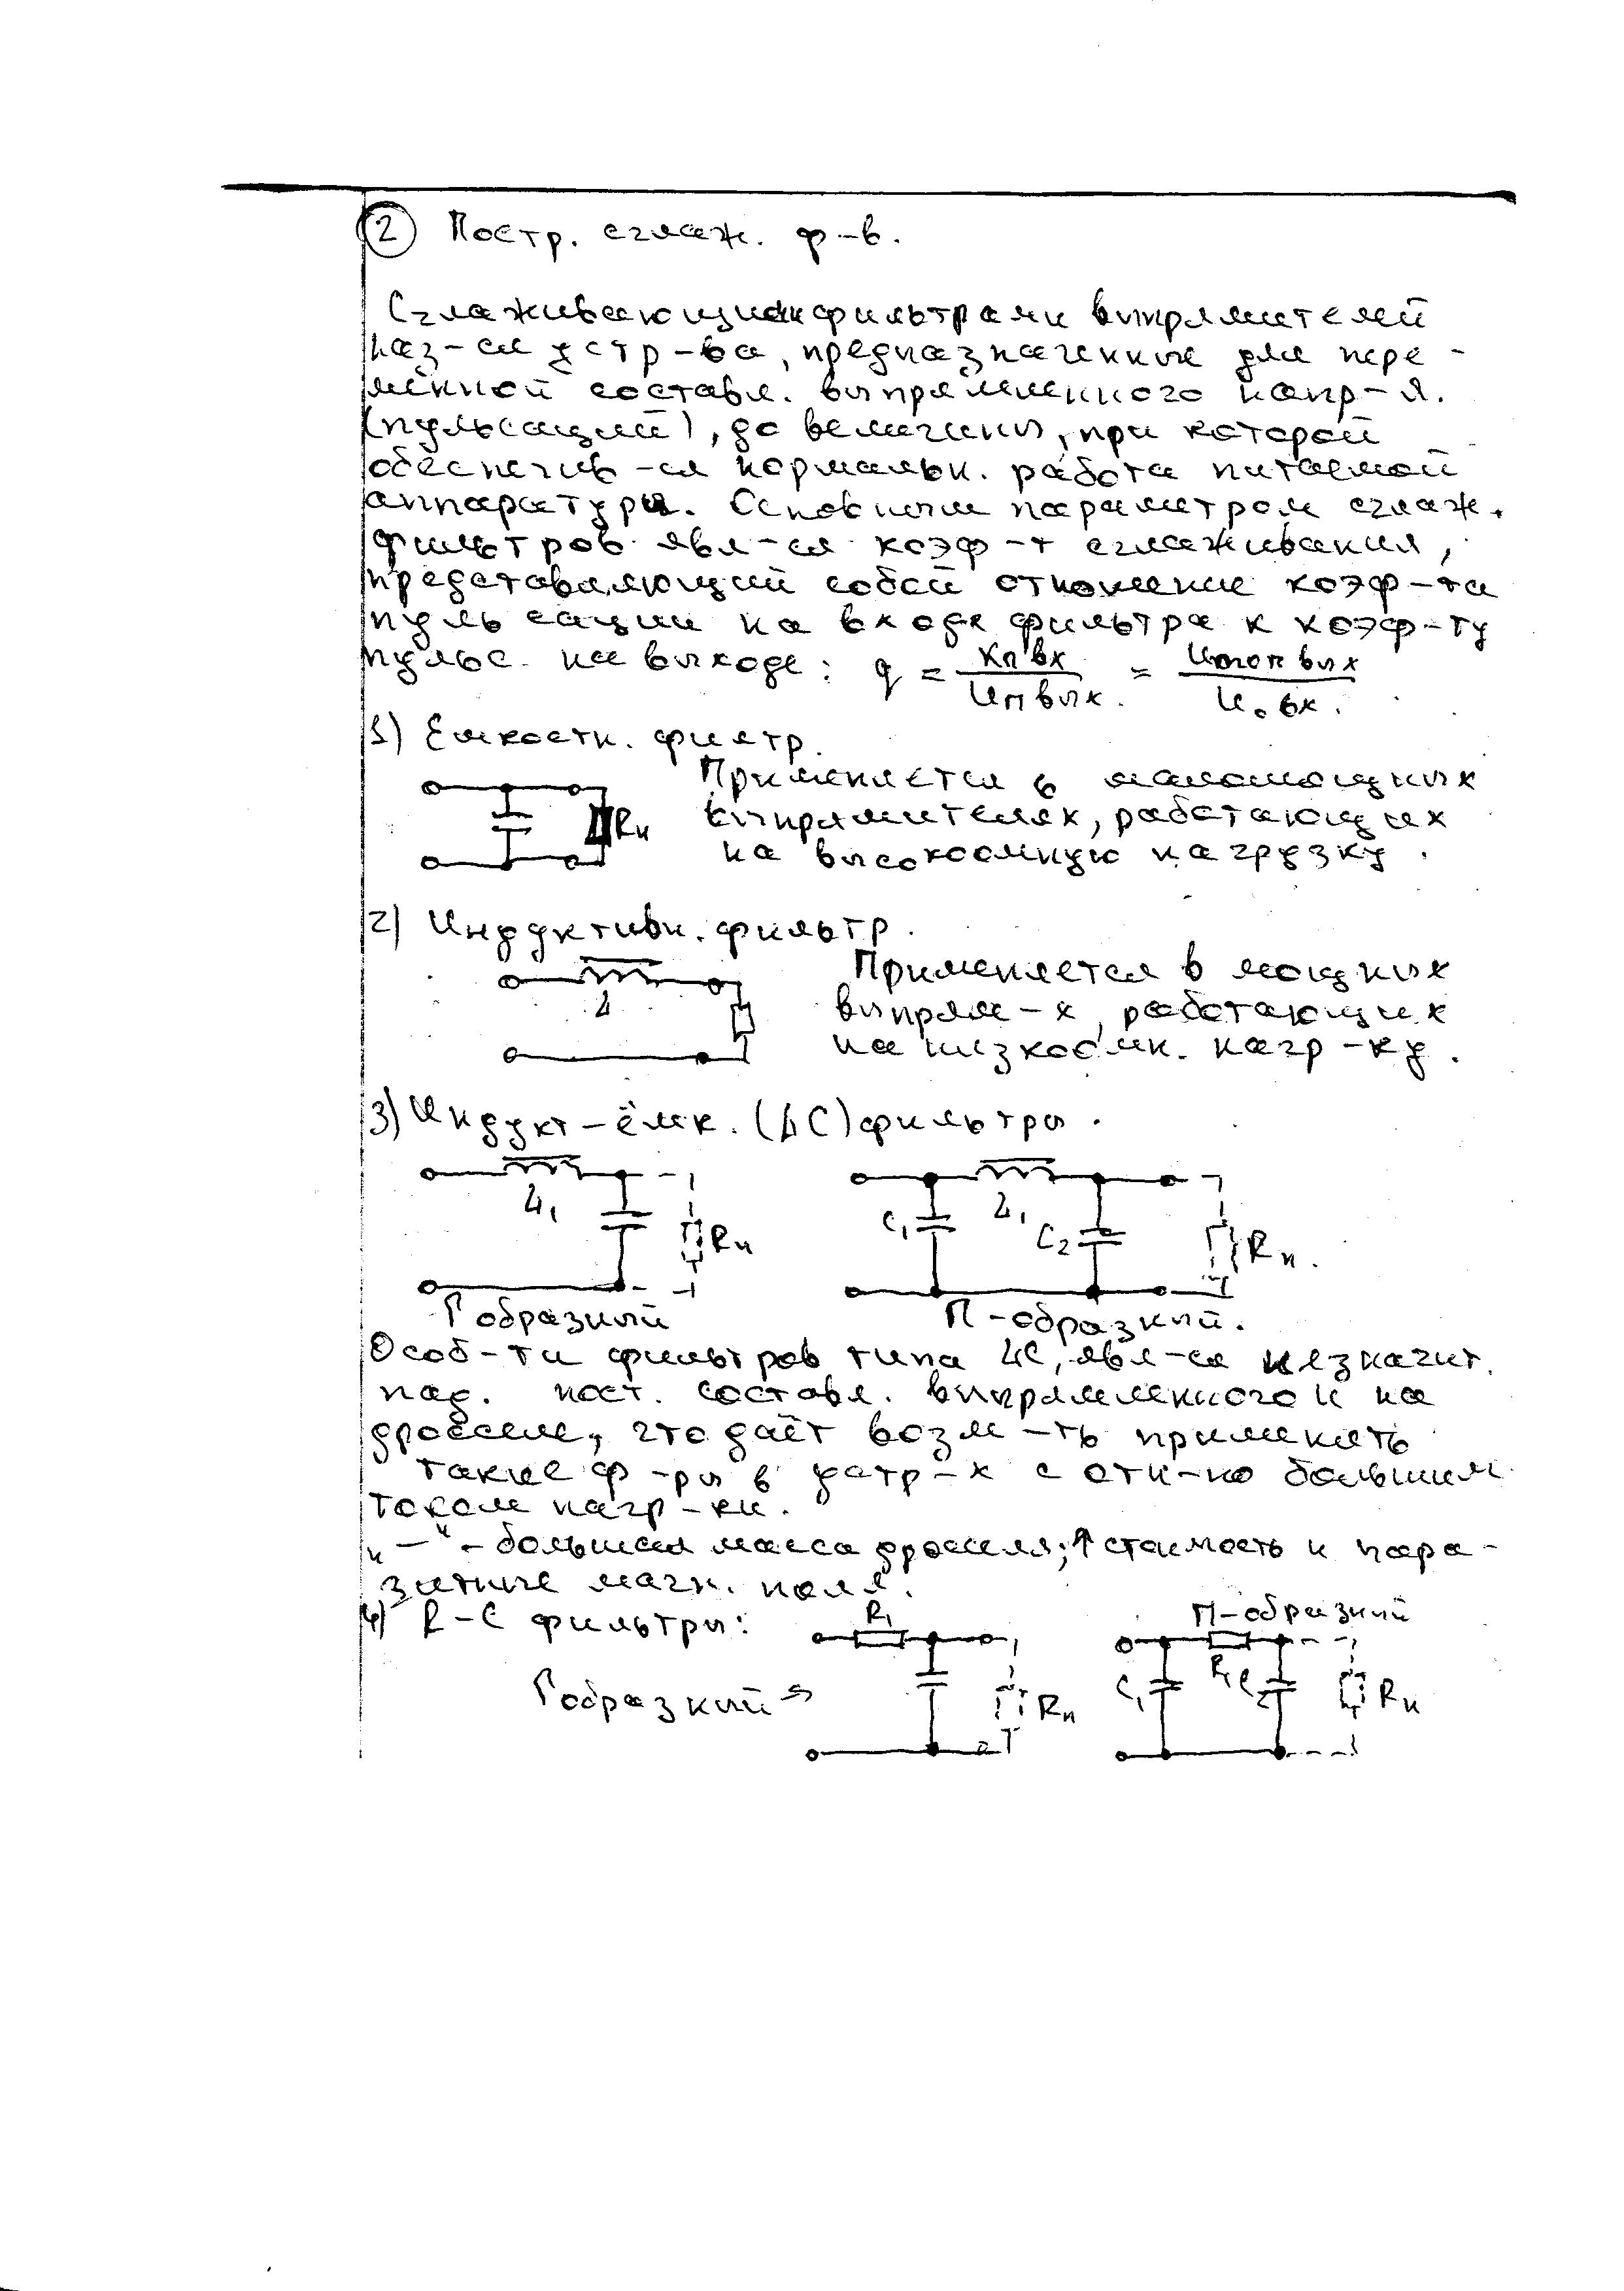 2 Постр. сглаж. ф-в.
Сглаживающими фильтрами выпрямителей
наз-ся устр-ва, предназначенные для пере-
менной составл. выпрямленного напр-я.
(пульсаций), до величины, при которой
обеспечив-ся нормальн. работа питаемой
аппаратуры. Основным параметром сглаж.
фильтров явл-ся коэф-т сглаживания,
представляющий собой отношение коэф-та
пульсации на входе фильтра к коэф-ту
пульс. на выходе: q = Кп вх / Uп вых. = вых / U₀ вх.
1) Ёмкостн. филтр.
Применяется в маломощных
Rн выпрямителях, работающих
на высокоомную нагрузку.
2) Индуктивн. фильтр.
Применяется в мощных
L выпрям-х, работающих
на низкоомн. нагр-ку.
3) Индукт-ёмк. (LC) фильтры.
L₁ Rн C₁ L₁ C₂ Rн.
Г образный П-образный.
Особ-ти фильтров типа LC, явл-ся незначит.
пад. пост. составл. выпрямленного U на
дросселе, что даёт возм-ть применять
такие ф-ры в устр-х с отн-но большим
током нагр-ки.
"—" - большая масса дросселя; ↑ стоимость и пара-
зитные магн. поля.
4) R-C фильтры: R₁ П-образный
Г образный → Rн C₁ R₁ C₂ Rн